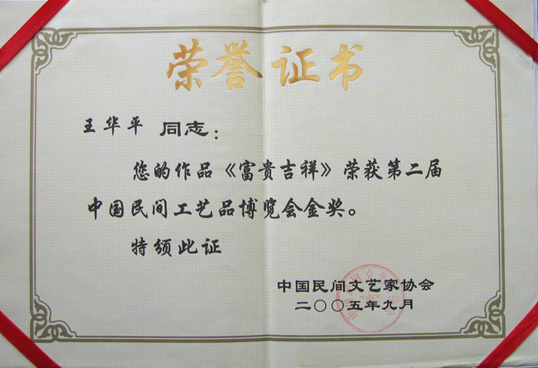 荣誉证书
王华平 同志：
您的作品《富贵吉祥》荣获第二届
中国民间工艺品博览会金奖。
特颁此证
中国民间文艺家协会
二〇〇五年九月